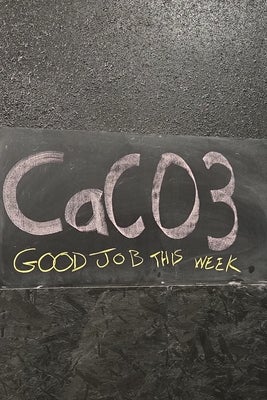 CaCO3
GOOD JOB THIS WEEK